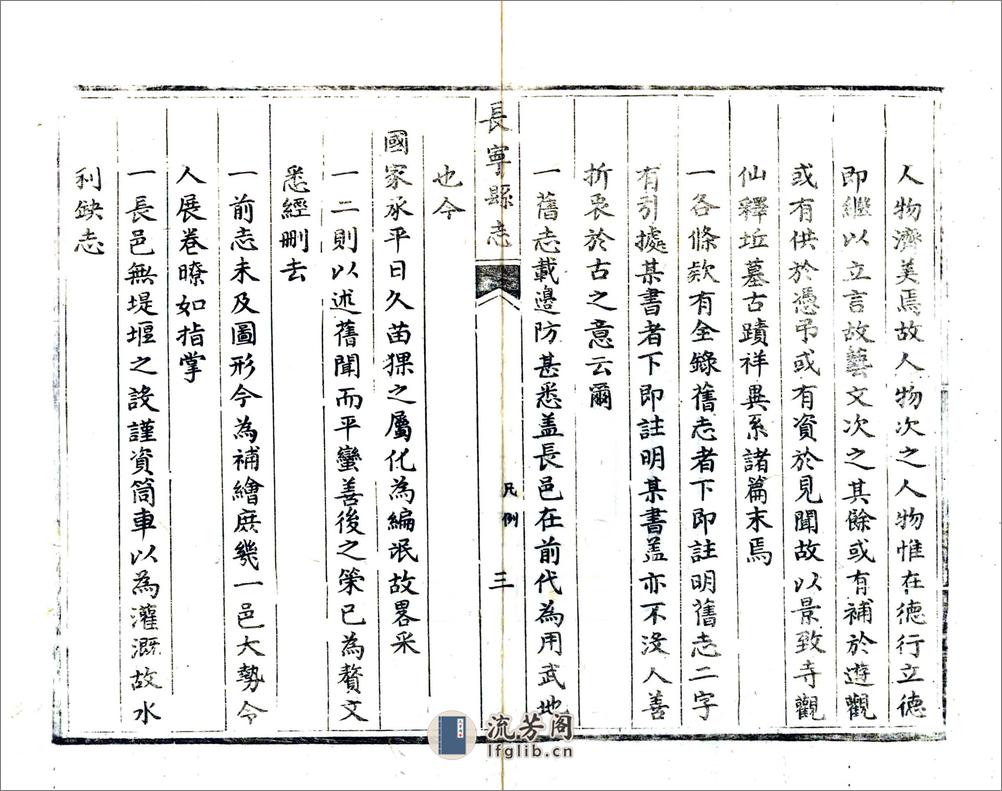 人物濟美焉故人物次之人物惟在德行立德
即繼以立言故藝文次之其餘或有補於遊觀
或有供於憑弔或有資於見聞故以景致寺觀
仙釋坵墓古蹟祥異系諸篇末焉
一各條欵有全錄舊志者下即註明舊志二字
有引據某書者下即註明某書盖亦不沒人善
折衷於古之意云爾
一舊志載邊防甚悉盖長邑在前代為用武地
長寧縣志
凡例
三
也今
國家承平日久苗猓之屬化為編氓故畧采
一二則以述舊聞而平蠻善後之策已為贅文
悉經刪去
一前志未及圖形今為補繪庶幾一邑大勢令
人展卷瞭如指掌
一長邑無堤堰之設謹資筒車以為灌溉故水
利缺志
流芳阁
lfglib.cn